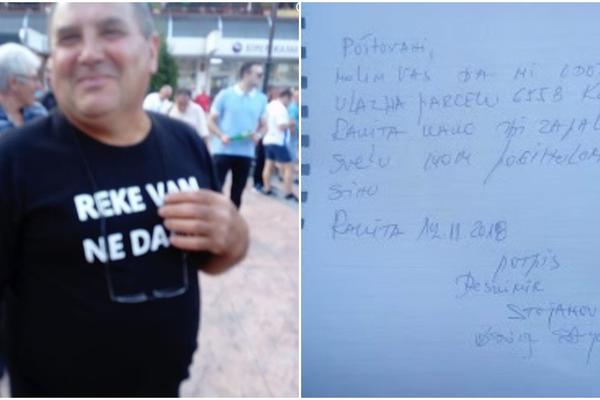 REKE VAM
NE DA
Poštovani,
MOLIM VAS DA MI
ULAZ NA PARCELU 6558
RAKITA KAKO BI ZAPAL
SVEĆU MOM POGINULOM
SINU
RAKITA 12.11.2018
POTPIS
DESIMIR
STOJANOV